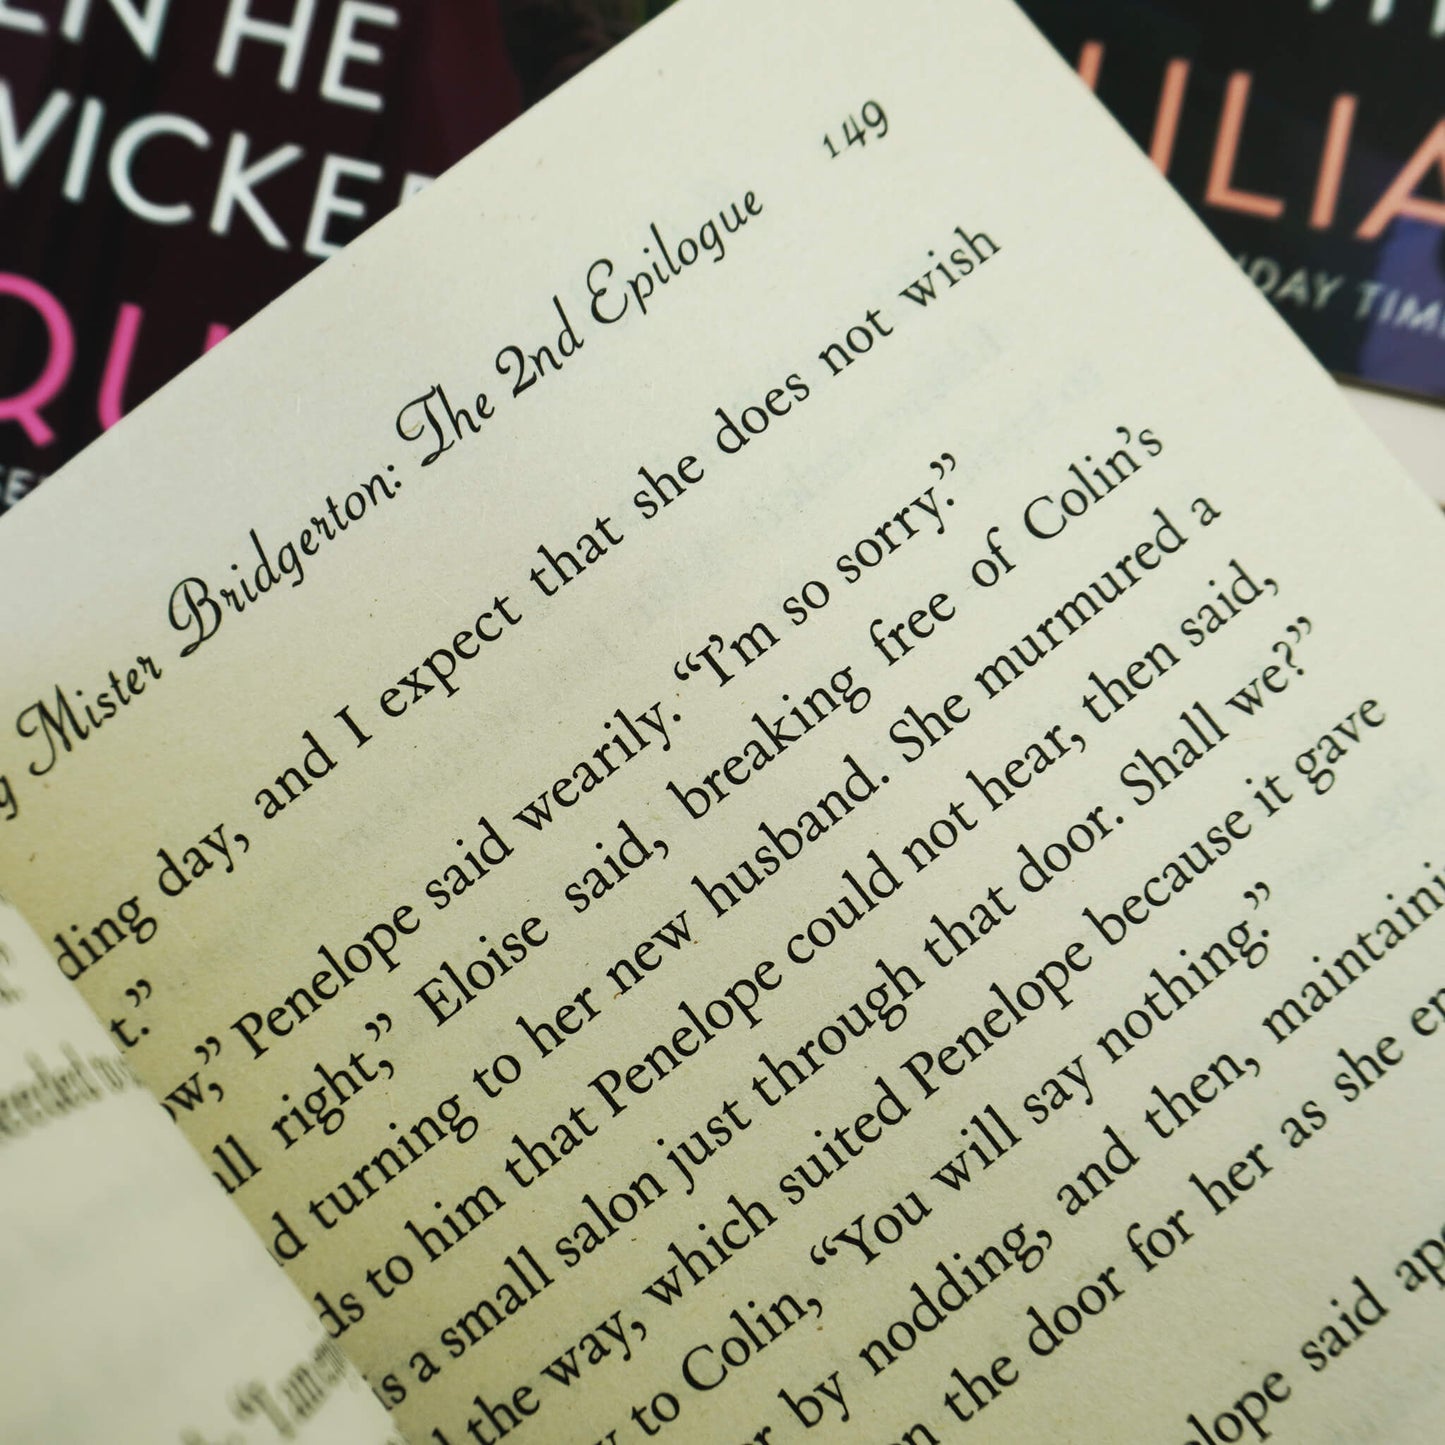 EN HE
WICKE
QU
SE
ULIA
NDAY TIM
149
g Mister Bridgerton: The 2nd Epilogue
ding day, and I expect that she does not wish
t.”
ow,” Penelope said wearily. “I’m so sorry.”
ll right,” Eloise said, breaking free of Colin’s
d turning to her new husband. She murmured a
ds to him that Penelope could not hear, then said,
is a small salon just through that door. Shall we?”
d the way, which suited Penelope because it gave
y to Colin, “You will say nothing.”
r by nodding, and then, maintaini
n the door for her as she en
lope said apo